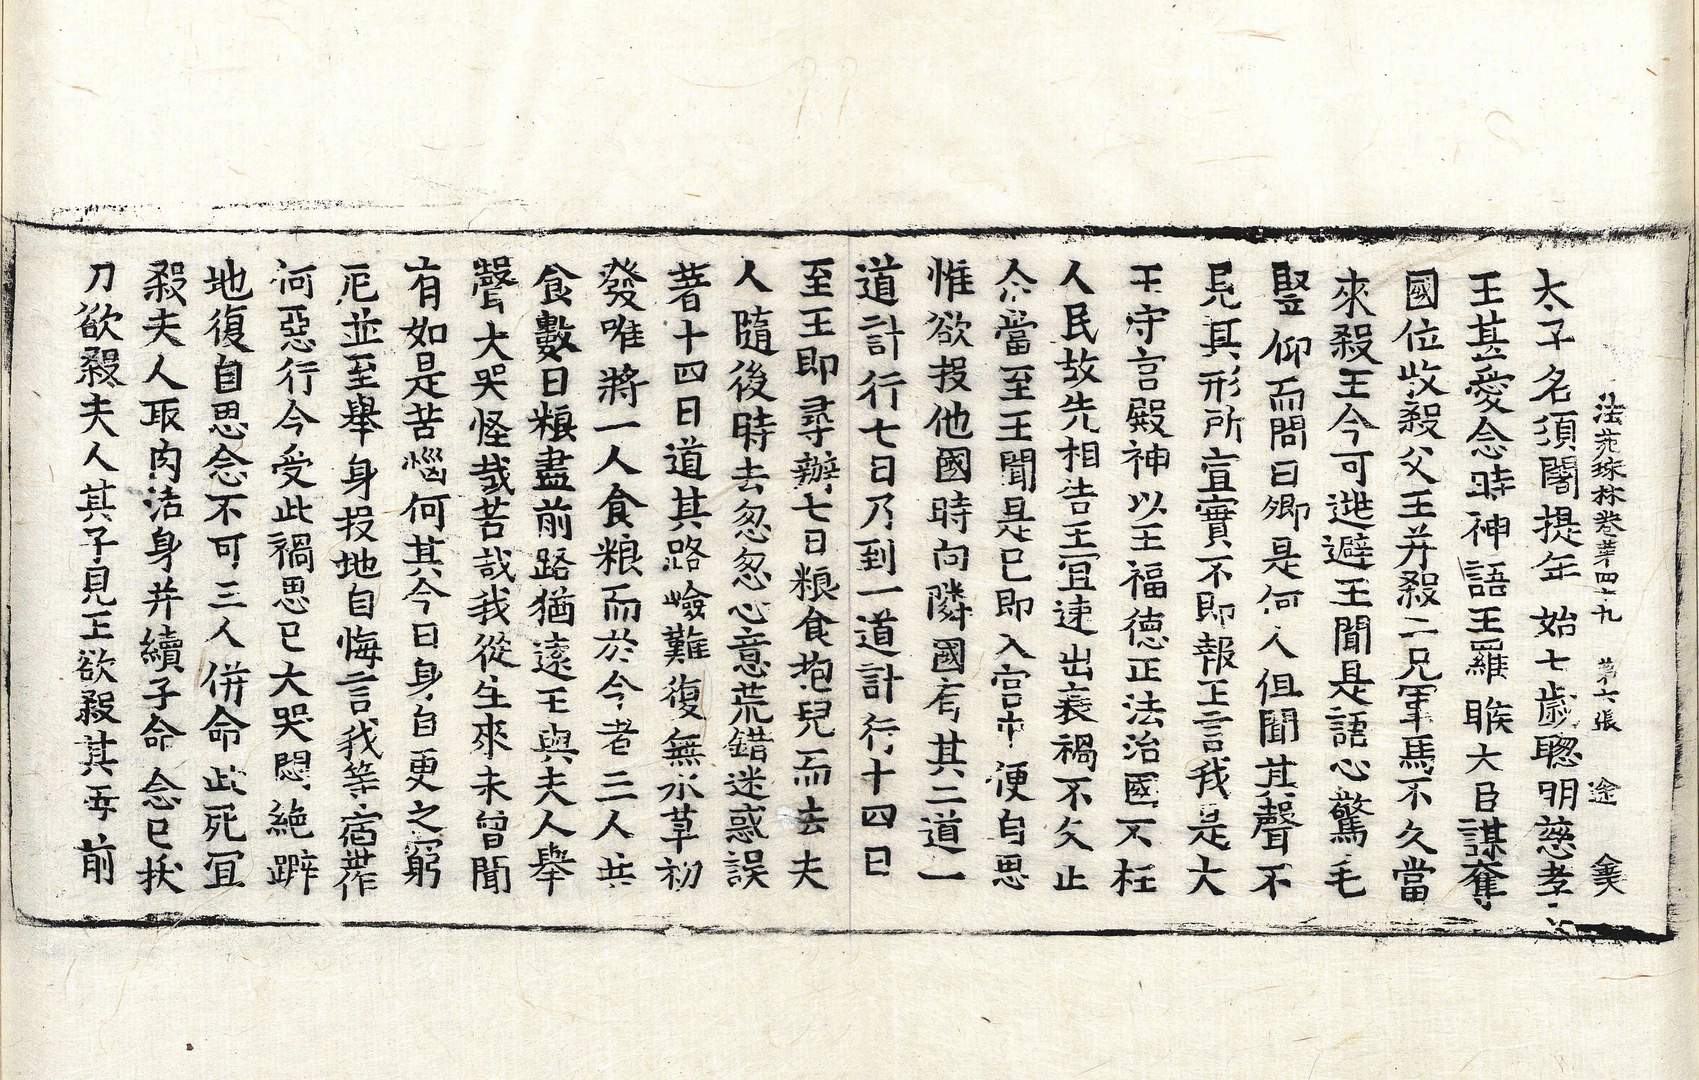 法苑珠林卷第四十九 第六張 塗
太子名須闍提年始七歲聰明慈孝
王甚愛念時神語王羅睺大臣謀奪
國位收殺父王并殺二兄軍馬不久當
來殺王今可逃避王聞是語心驚毛
豎仰而問曰卿是何人但聞其聲不
見其形所宣實不即報王言我是大
王守宮殿神以王福德正法治國不枉
人民故先相告王宜速出衰禍不久止
尒當至王聞是已即入宮中便自思
惟欲投他國時向隣國有其二道一
道計行七日乃到一道計行十四日
至王即尋辦七日粮食抱兒而去夫
人隨後時去忽忽心意荒錯迷惑誤
著十四日道其路嶮難復無水草初
發唯將一人食粮而於今者三人共
食數日粮盡前路猶遠王與夫人舉
聲大哭怪哉苦哉我從生來未曾聞
有如是苦惱何其今日身自更之窮
厄並至舉身投地自悔言我等宿作
何惡行今受此禍思已大哭悶絕躃
地復自思念不可三人併命此死冝
殺夫人取肉活身并續子命念已拔
刀欲殺夫人其子見王欲殺其母前